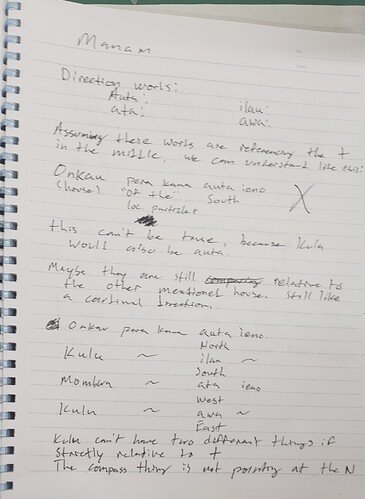 Manam
Direction works:
Auta: ilau:
ata: awa:
Assuming these works are referencing the +
in the middle, we can understand like this:
Onkau pera kana auta ieno
(house) "of the" South X
loc. particle
this can't be true, because Kulu
would also be auta.
Maybe they are still comparing relative to
the other mentioned house. Still like
a cardinal direction.
Onkau pera kana auta ieno.
North
Kulu ~ ilau ~
South
Momboa ~ ata ieno
West
Kulu ~ awa ~
East
Kulu can't have two different things if
strictly relative to +
The compass thing is not pointing at the N